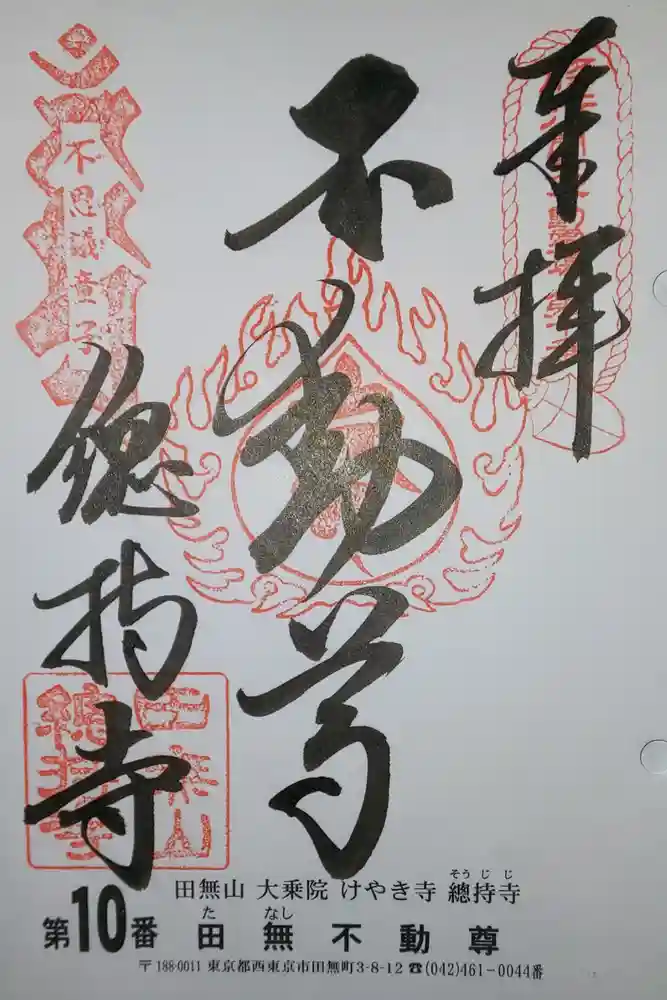 奉拝
不動尊
總持寺
不思議童子
田無山 大乗院 けやき寺 總持寺
そうじじ
第10番 田無不動尊
たなし
〒188-0011 東京都西東京市田無町3-8-12 ☎(042)461-0044番